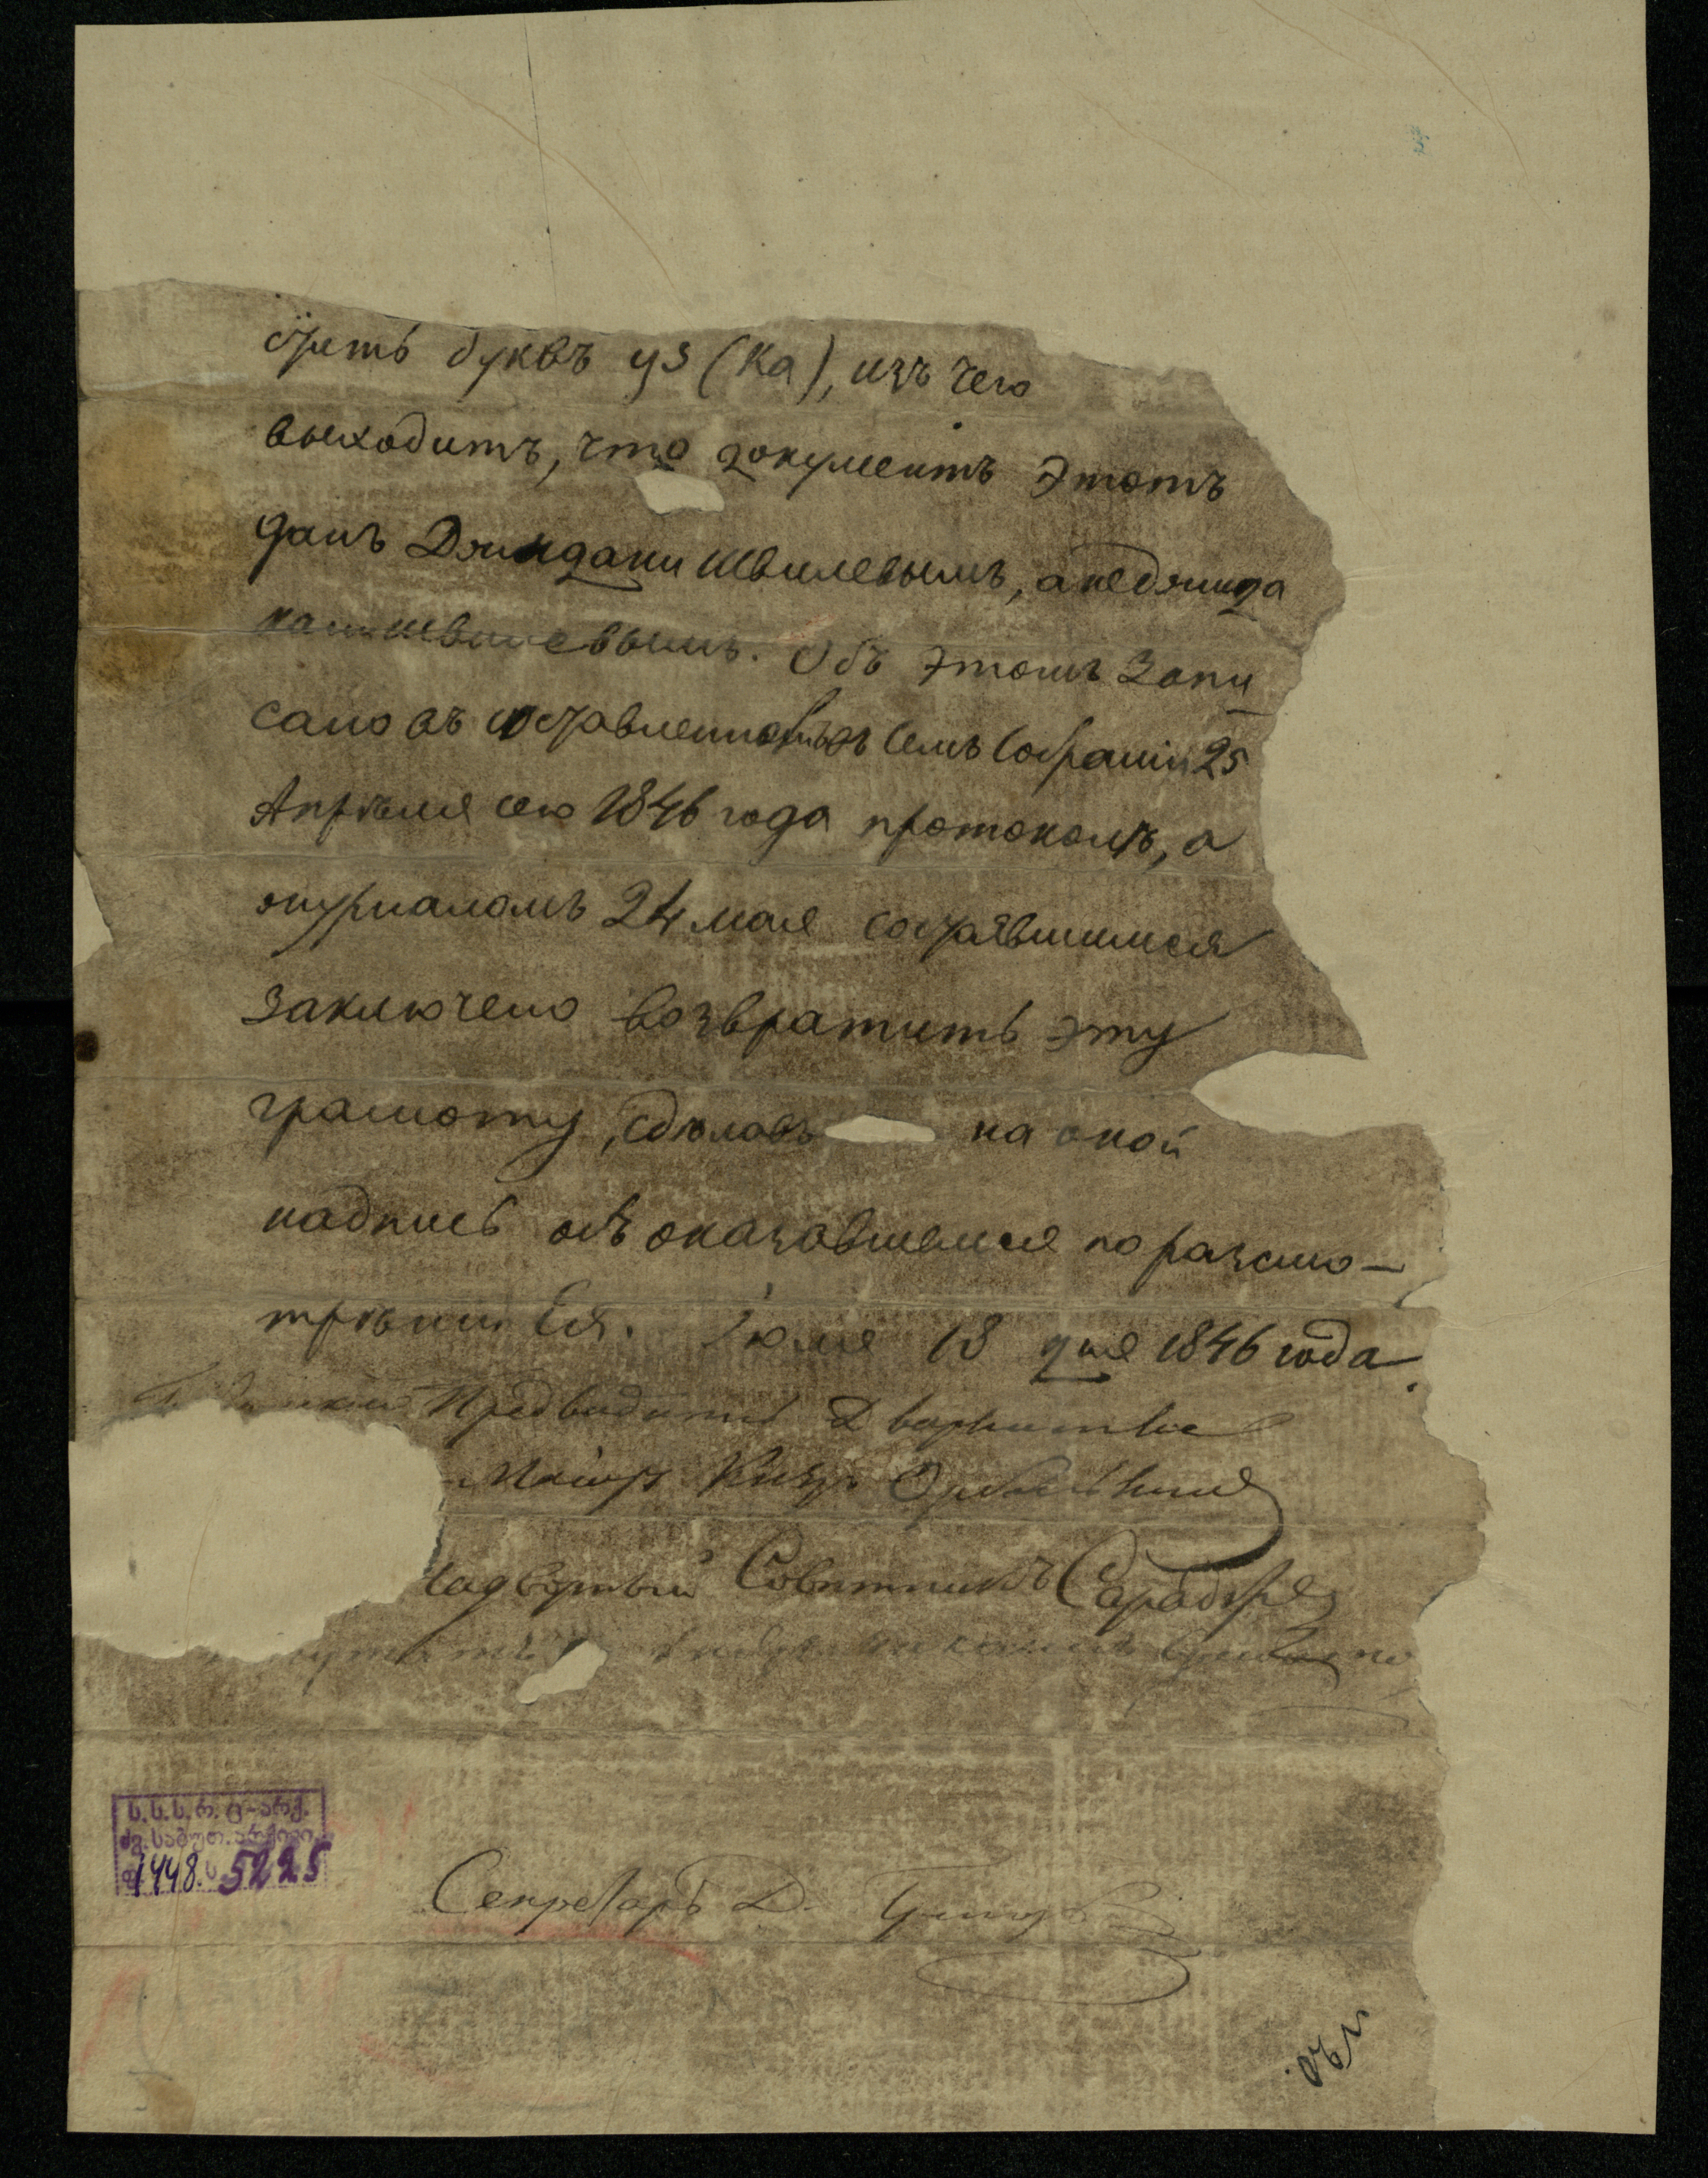 стить буквъ уз (ка), изъ чего
выходитъ, что документъ этотъ
данъ Джинданишвилевымъ, а не Джинда
канишвилевымъ. Объ этомъ запи
сано въ составленномъ въ семъ Собраніи 25
Апрѣля сего 1846 года протоколѣ, а
журналомъ 24 мая состоявшимся
заключено возвратить эту
грамоту, сдѣлавъ на оной
надпись объ оказавшемся по разсмо-
трѣніи Ея. Іюля 18 дня 1846 года.
Предводитель Дворянства
Маіоръ Князь Орбеліани
Надворный Совѣтникъ
Секретарь Д.
ს.ს.ს.რ. ც-არქ.
ძვ. საბუთ. არქივი
ფ 1448. ს 5225